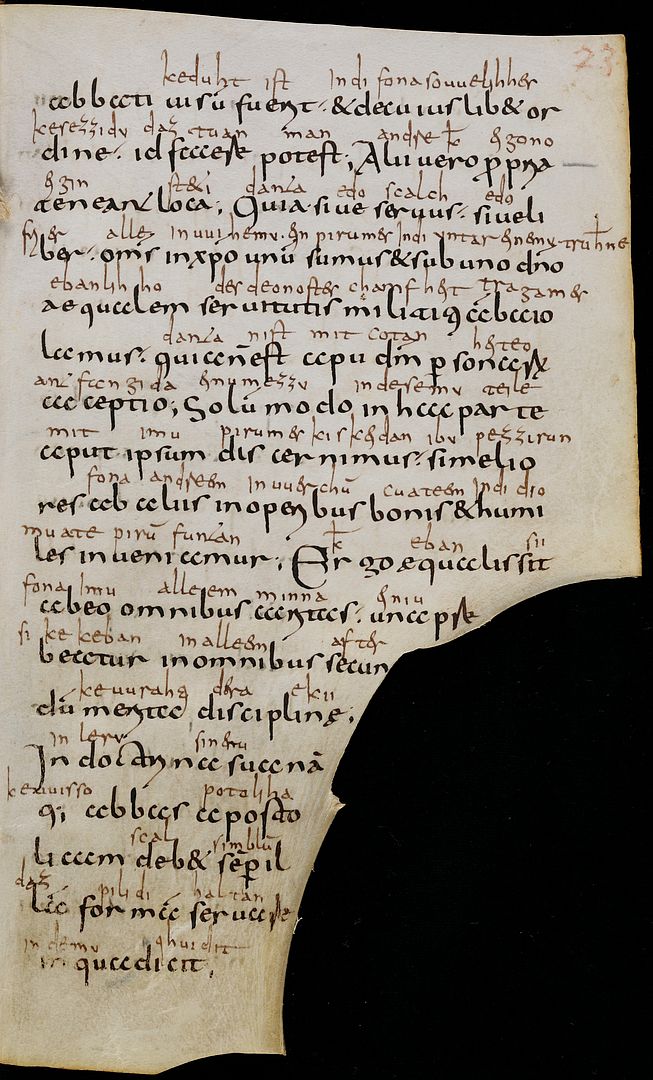 23
keduht ist Indi fona souuelihher
abbati uisū fuerit· & de cuiuslib& or
kesezzidu daz tuan man andre k eigono
dine· id facere potest; Alii uero ppria
eigin steti danta edo scalch edo
teneant loca; Quia siue seruus· siueli
frier alle in uuihemu ein pirumes Indi untar einemu truhtine
ber· om̄s in xpo unū sumus & sub uno dn̄o
ebanlihho des deonostes chamfheit tragames
aequalem seruitutis militię baiolo
danta nist mit cotan heiteo
lamus· quia n̄ est apu dm̄ p̱sonarū
antfangida einu mezzu in desemu teile
acceptio; Solū modo in hac parte
mit imu pirumes kiskeidan ibu pezzirun
aput ipsum discernimus· si melio
fona andreem In uuerchū cuateem Indi deo
res ab aliis in operibus bonis & humi
muate pirū funtan k eban sii
les inueniamur; Ergo ęqualis sit
fona Imu alleem minna einiu
ab eo omnibus caritas· una pre
si kekeban in alleem after
beatur in omnibus secun
keuurahti dera ekii
dū merita disciplinę;
in leru sineru
In doctrina sua nā
keuuisso potoliha
q; abbas aposto
scal simblū
licam deb& sēp il
daz pilidi haltan
lā formā seruare
in demu qhuidit
in qua dicit;